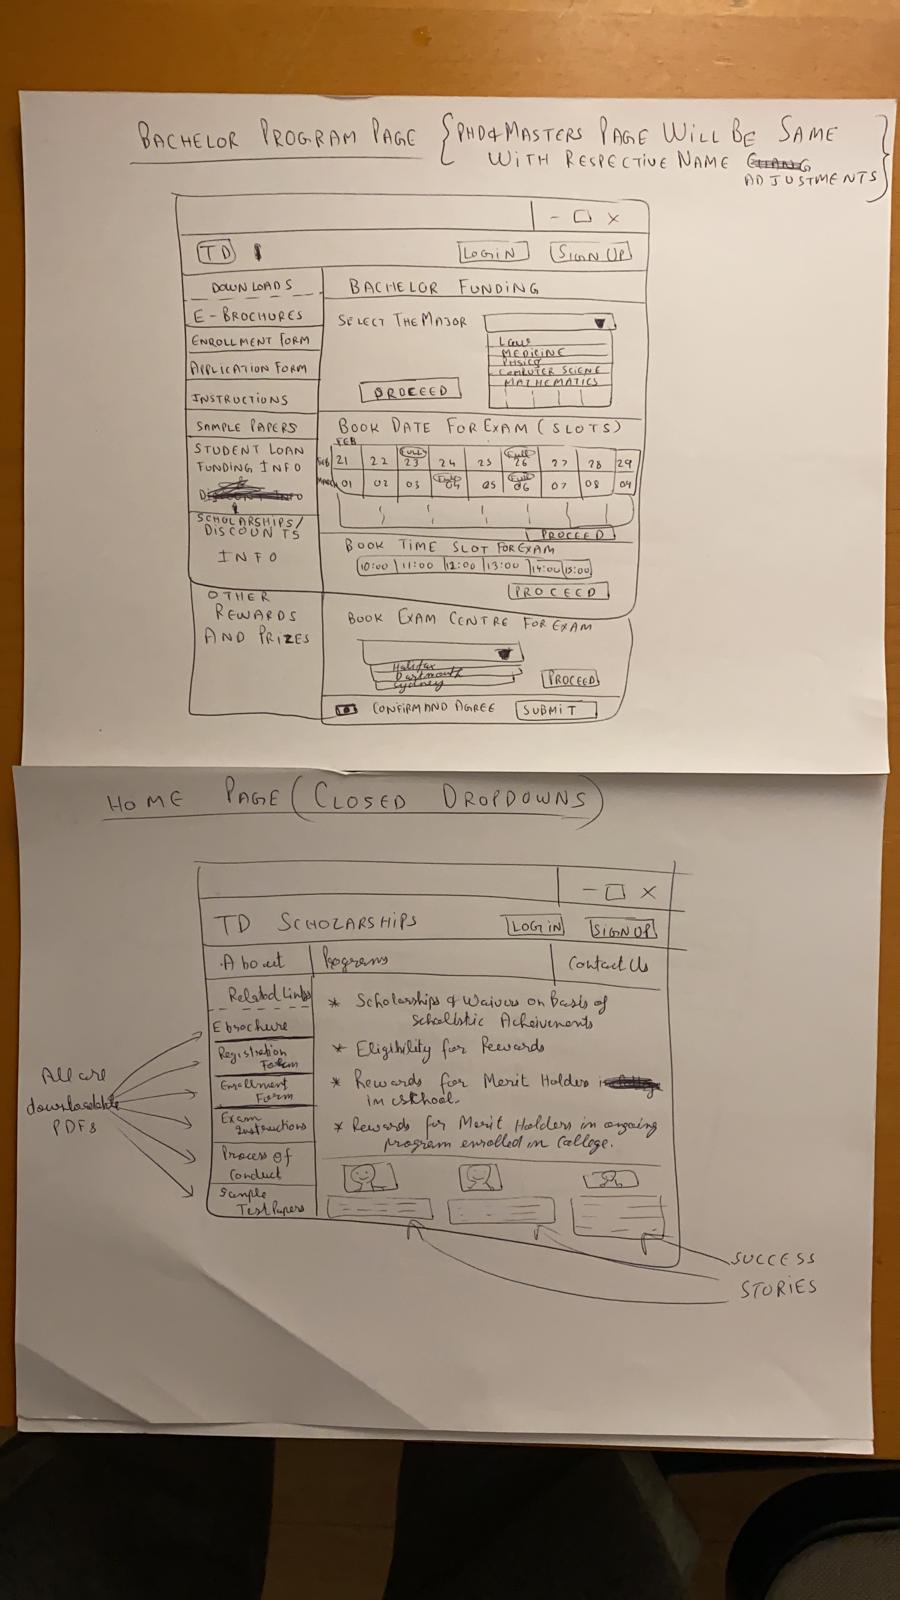 BACHELOR PROGRAM PAGE {PHD & MASTERS PAGE WILL BE SAME
WITH RESPECTIVE NAME
ADJUSTMENTS}
- □ X
TD
LOGIN
SIGN UP
DOWNLOADS
E-BROCHURES
ENROLLMENT FORM
APPLICATION FORM
INSTRUCTIONS
SAMPLE PAPERS
STUDENT LOAN
FUNDING INFO
SCHOLARSHIPS/
DISCOUNTS
INFO
OTHER
REWARDS
AND PRIZES
BACHELOR FUNDING
SELECT THE MAJOR
Law
MEDICINE
PHSICS
COMPUTER SCIENE
MATHEMATICS
PROCEED
BOOK DATE FOR EXAM (SLOTS)
FEB
FEB 21 22 FULL 23 24 25 Full 26 27 28 29
March 01 02 03 Full 04 05 Full 06 07 08 09
PROCEED
BOOK TIME SLOT FOR EXAM
10:00 11:00 12:00 13:00 14:00 15:00
PROCEED
BOOK EXAM CENTRE FOR EXAM
Halifax
Dartmouth
Sydney
PROCEED
CONFIRM AND AGREE
SUBMIT
HOME PAGE (CLOSED DROPDOWNS)
- □ X
TD SCHOLARSHIPS
LOG IN
SIGN UP
About
Programs
Contact Us
Related Links
Ebrochure
Registration
Form
Enrollment
Form
Exam
Instructions
Process of
Conduct
Sample
Test Papers
All are
downloadable
PDFs
* Scholarships & Waivers on Basis of
Scholistic Acheivements
* Eligibility for Rewards
* Rewards for Merit Holders
in school.
* Rewards for Merit Holders in ongoing
program enrolled in College.
SUCCESS
STORIES